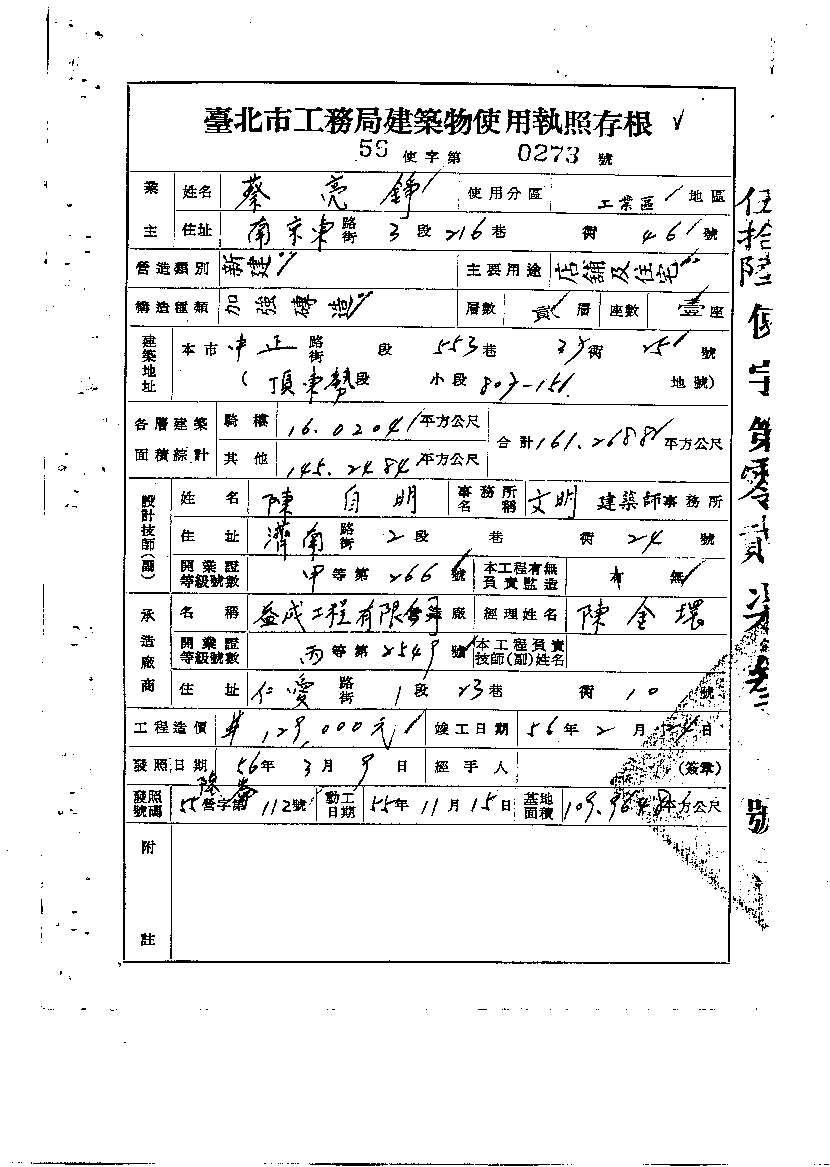 臺北市工務局建築物使用執照存根
56 使字第 0273 號
業主 姓名 蔡亮錚 使用分區 工業區 地區
住址 南京東 路街 3 段 216 巷 衖 46 號
營造類別 新建 主要用途 店舖及住宅
構造種類 加強磚造 層數 貳 層 座數 壹 座
建築地址 本市 中正 路街 段 553 巷 衖 25 號
( 頂東勢 段 小段 地號)
各層建築面積綜計 騎樓 16.0204 平方公尺 合計 161.2688 平方公尺
其他 145.2484 平方公尺
設計技師(副) 姓名 陳自明 事務所名稱 文明 建築師事務所
住址 濟南 路街 2 段 巷 衖 24 號
開業證等級號數 甲 等第 266 號 本工程有無負責監造 有 無
承造廠商 名稱 益成工程有限 廠 經理姓名 陳金環
開業證等級號數 丙 等第 2549 號 本工程負責技師(副)姓名
住址 仁愛 路街 1 段 23 巷 衖 10 號
工程造價 129,000元 竣工日期 56 年 2 月 日
發照日期 56 年 3 月 9 日 經手人 (簽章)
發照號碼 55 營字第 112 號 動工日期 55 年 11 月 15 日 基地面積 平方公尺
附註
伍拾陸使字第零貳柒叁號